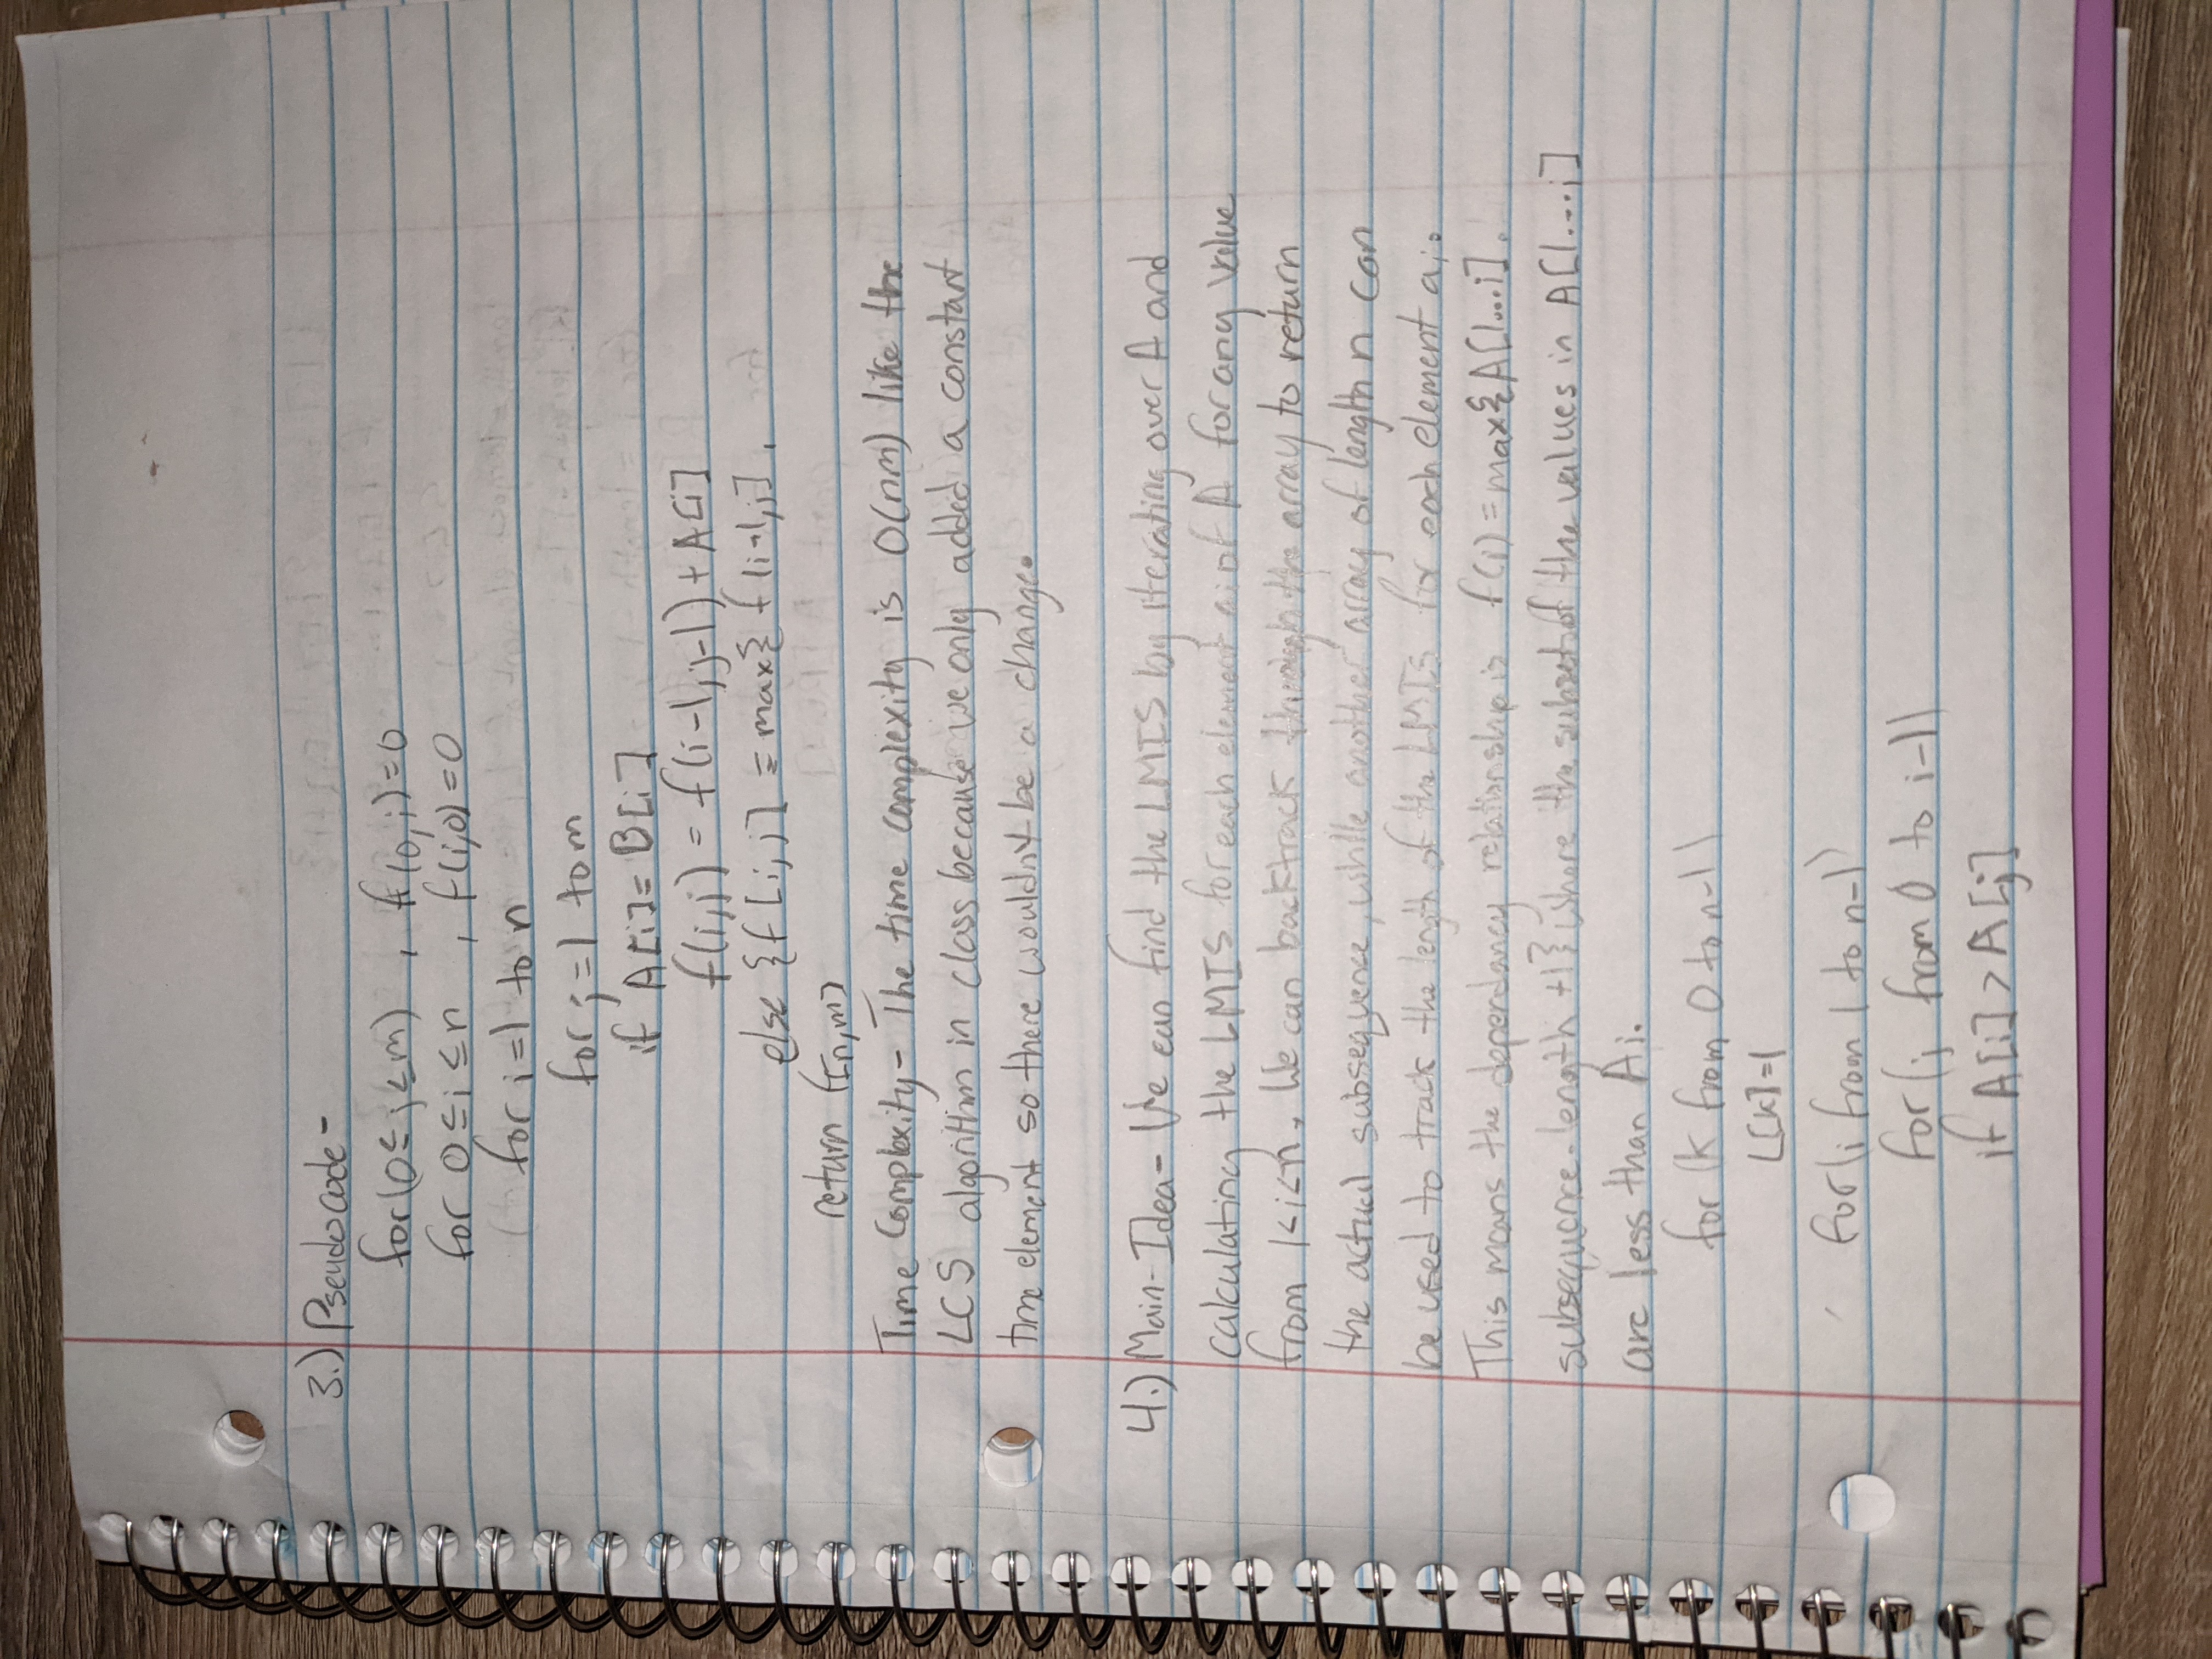 3.) Pseudocode-
for (0 ≤ j ≤ m) , f(0,j)=0
for 0 ≤ i ≤ n , f(i,0)=0
for i=1 to n
for j=1 to m
if A[i]= B[i]
f(i,j) = f(i-1,j-1) + A[i]
else {f[i,j] = max{ f(i-1,j],
return f[n,m]
Time Complexity- The time complexity is O(nm) like the
LCS algorithm in class because we only added a constant
time element so there wouldn't be a change.
4.) Main-Idea- We can find the LMIS by iterating over A and
calculating the LMIS for each element ai of A for any value
from 1<i<n. We can backtrack through the array to return
the actual subsequence, while another array of length n can
be used to track the length of the LMIS for each element ai.
This means the dependancy relationship is f(i) = max{A[1...i].
subsequence.length +1} where the subset of the values in A[1...i]
are less than Ai.
for (k from 0 to n-1)
L[k]=1
for (i from 1 to n-1)
for (j from 0 to i-1)
if A[i] > A[j]